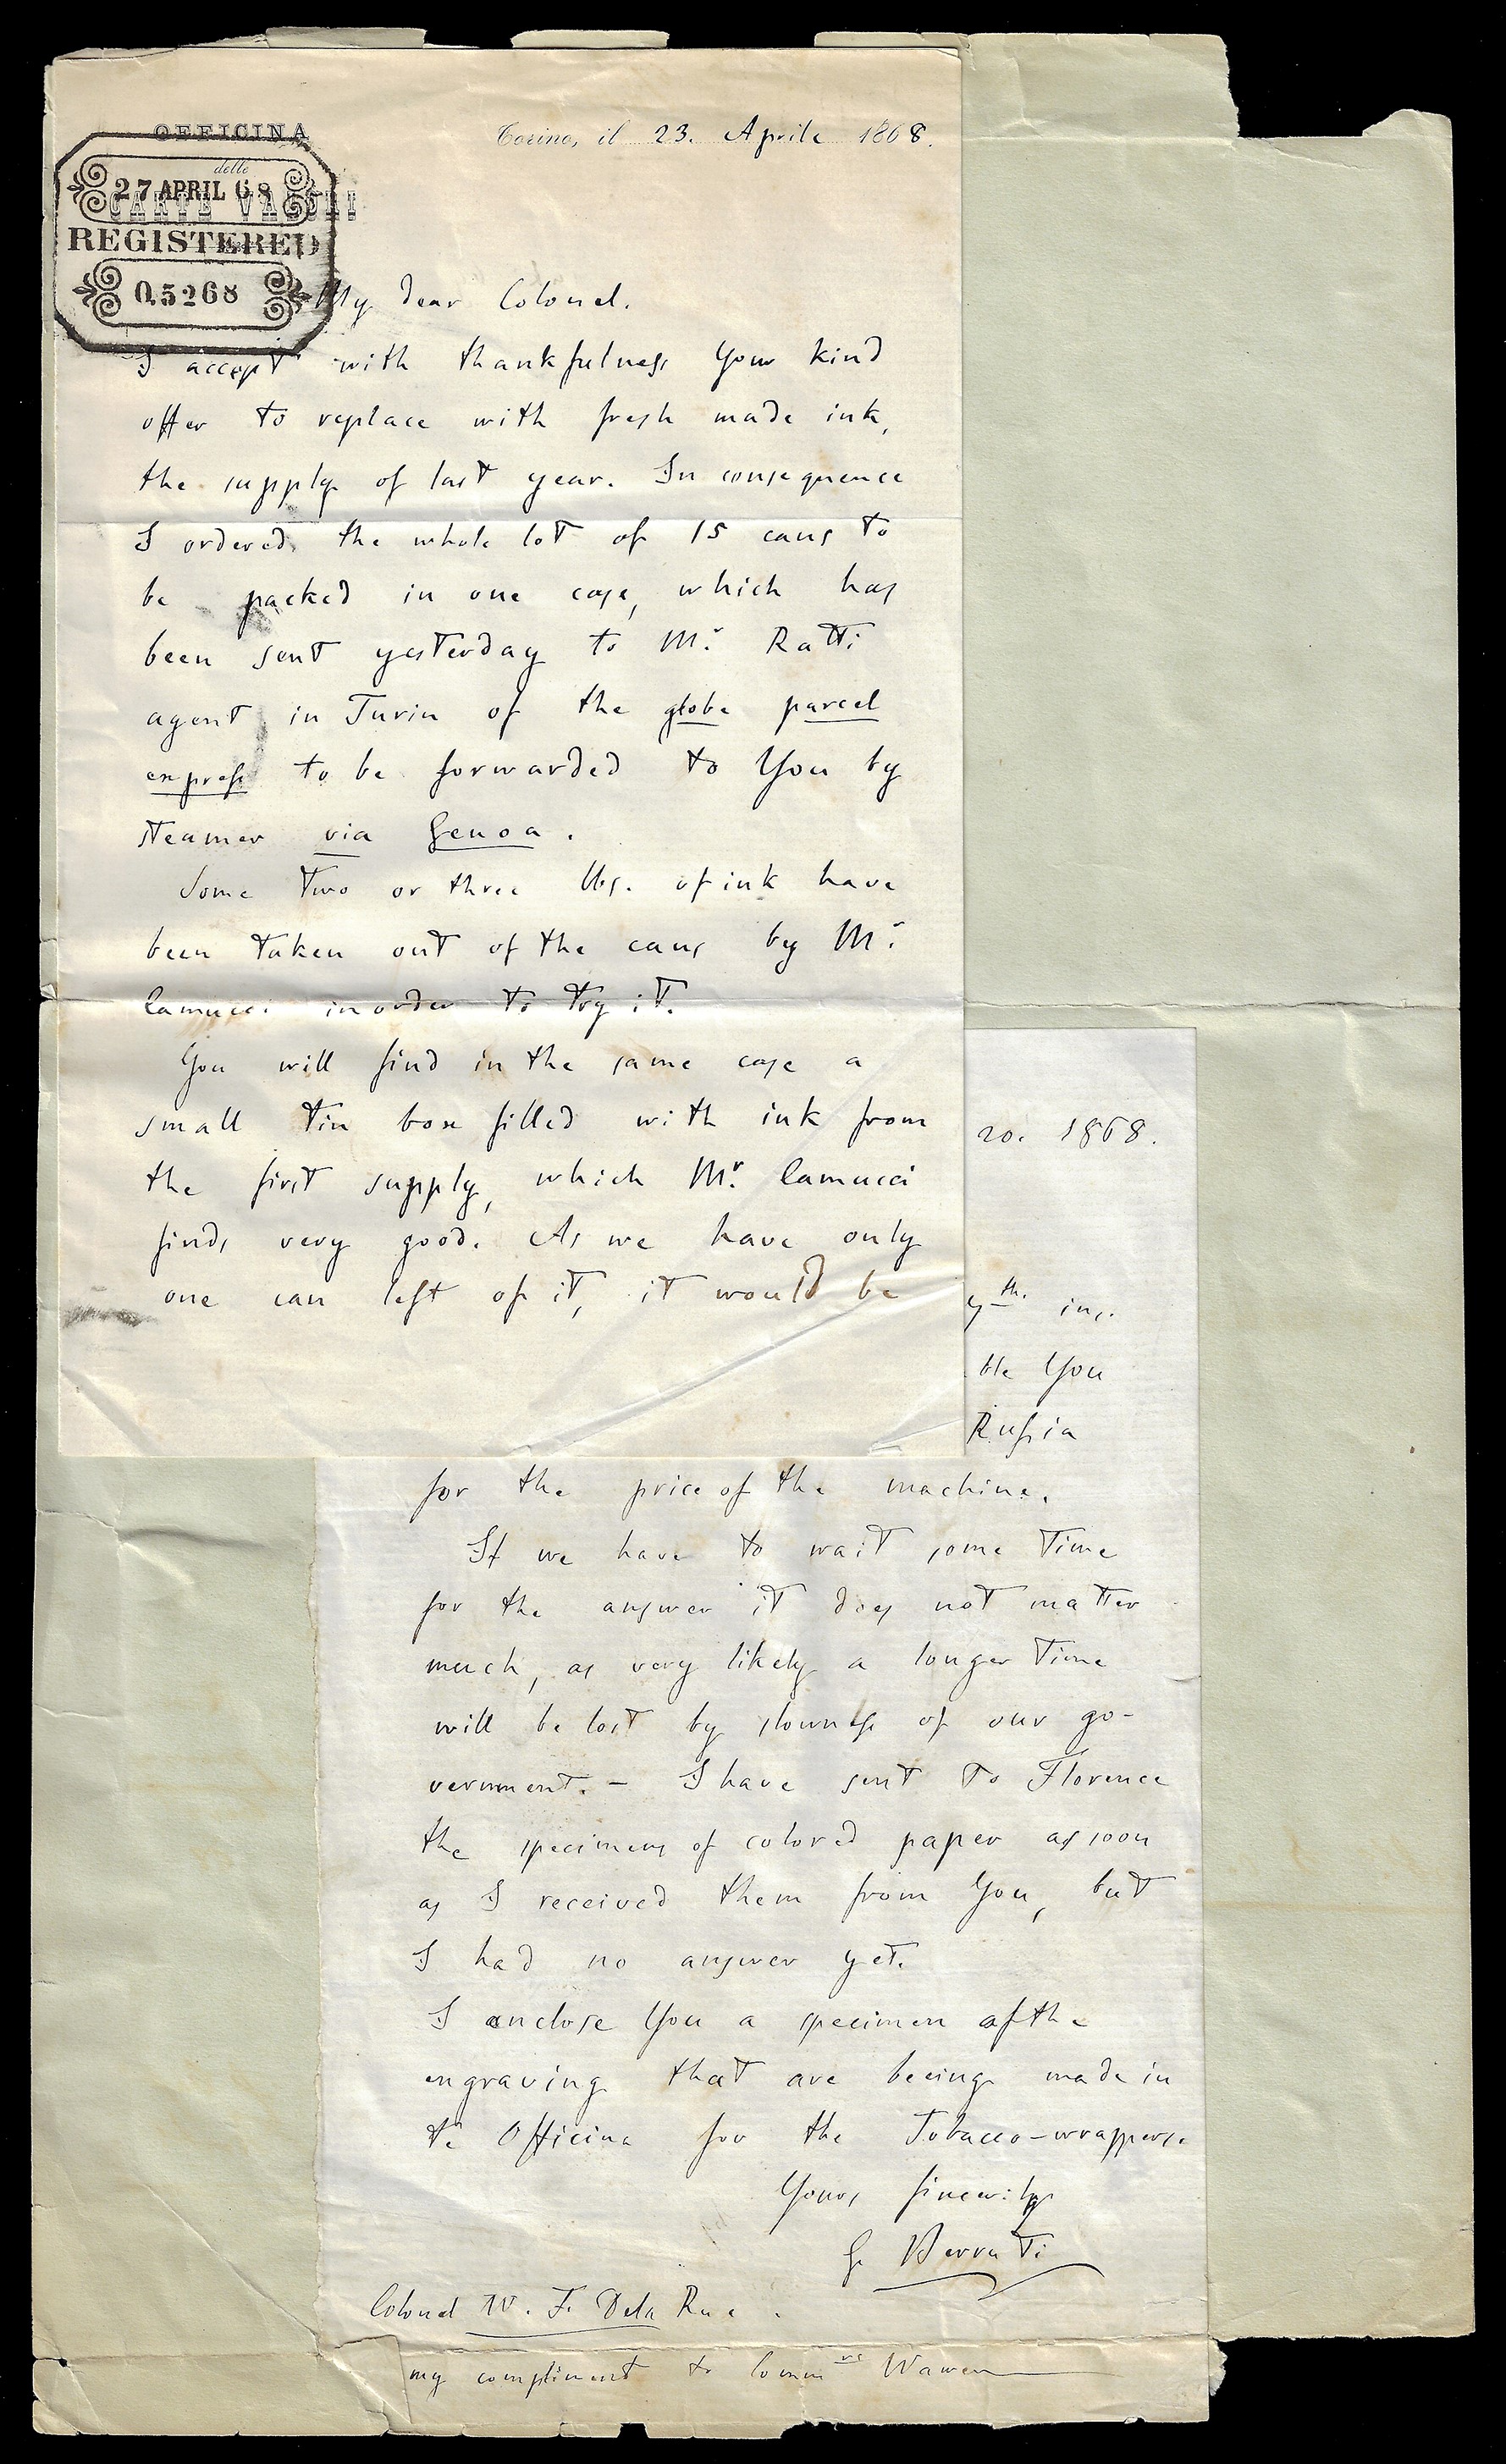 OFFICINA
delle
CARTE VALORI
Torino, il 23. Aprile 1868.
27 APRIL 68
REGISTERED
05268
My dear Colonel.
I accept with thankfulness Your kind
offer to replace with fresh made ink,
the supply of last year. In consequence
I ordered the whole lot of 15 cans to
be packed in one case, which has
been sent yesterday to Mr. Ratti
agent in Turin of the globe parcel
express to be forwarded to You by
steamer via Genoa.
Some two or three lbs. of ink have
been taken out of the cans by Mr.
Camucci in order to try it.
You will find in the same case a
small tin box filled with ink from
the first supply, which Mr. Camucci
finds very good. As we have only
one can left of it, it would be
20. 1868.
th. ins.
ble You
Russia
for the price of the machine.
If we have to wait some time
for the answer it does not matter
much, as very likely a longer time
will be lost by slowness of our go-
vernment. - I have sent to Florence
the specimens of colored paper as soon
as I received them from You, but
I had no answer yet.
I enclose You a specimen of the
engraving that are beeing made in
te Officina for the Tobacco-wrappers.
Yours sincerily
G. Berruti
Colonel W. F. Dela Rue.
my compliment to Comm re Wawen